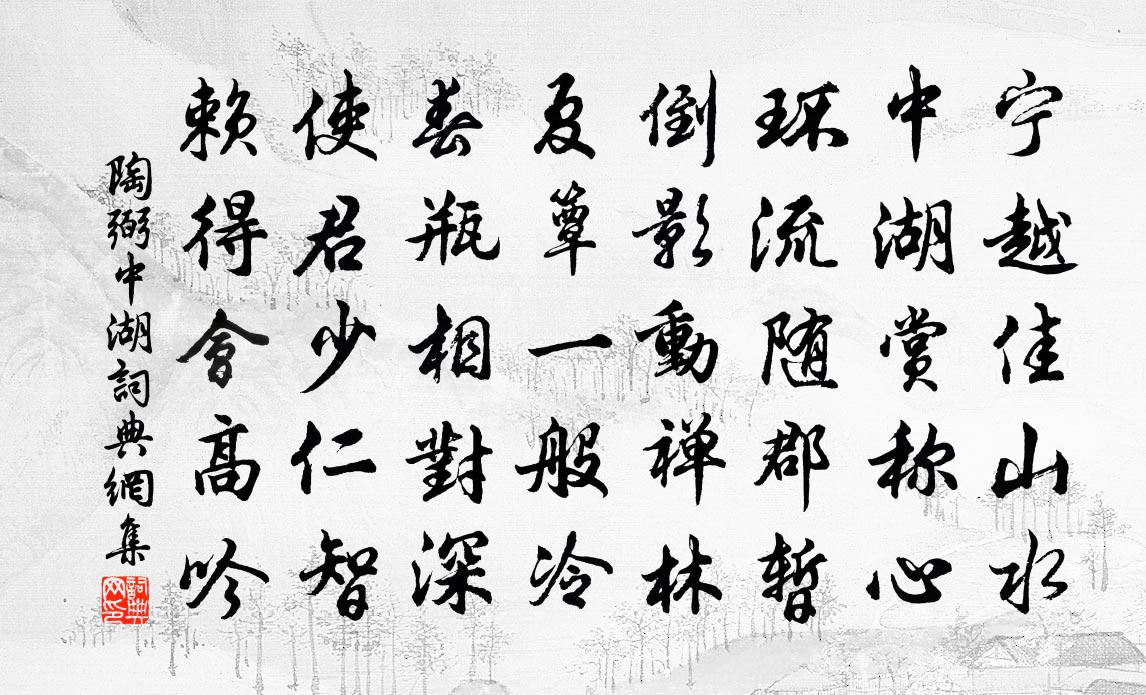 宁越佳山水
中湖赏称心
环流随郡暫
倒影動禅林
夏簟一般冷
春瓶相對深
使君少仁智
赖得會高吟
陶弼中湖詞典網集
詞典
网印